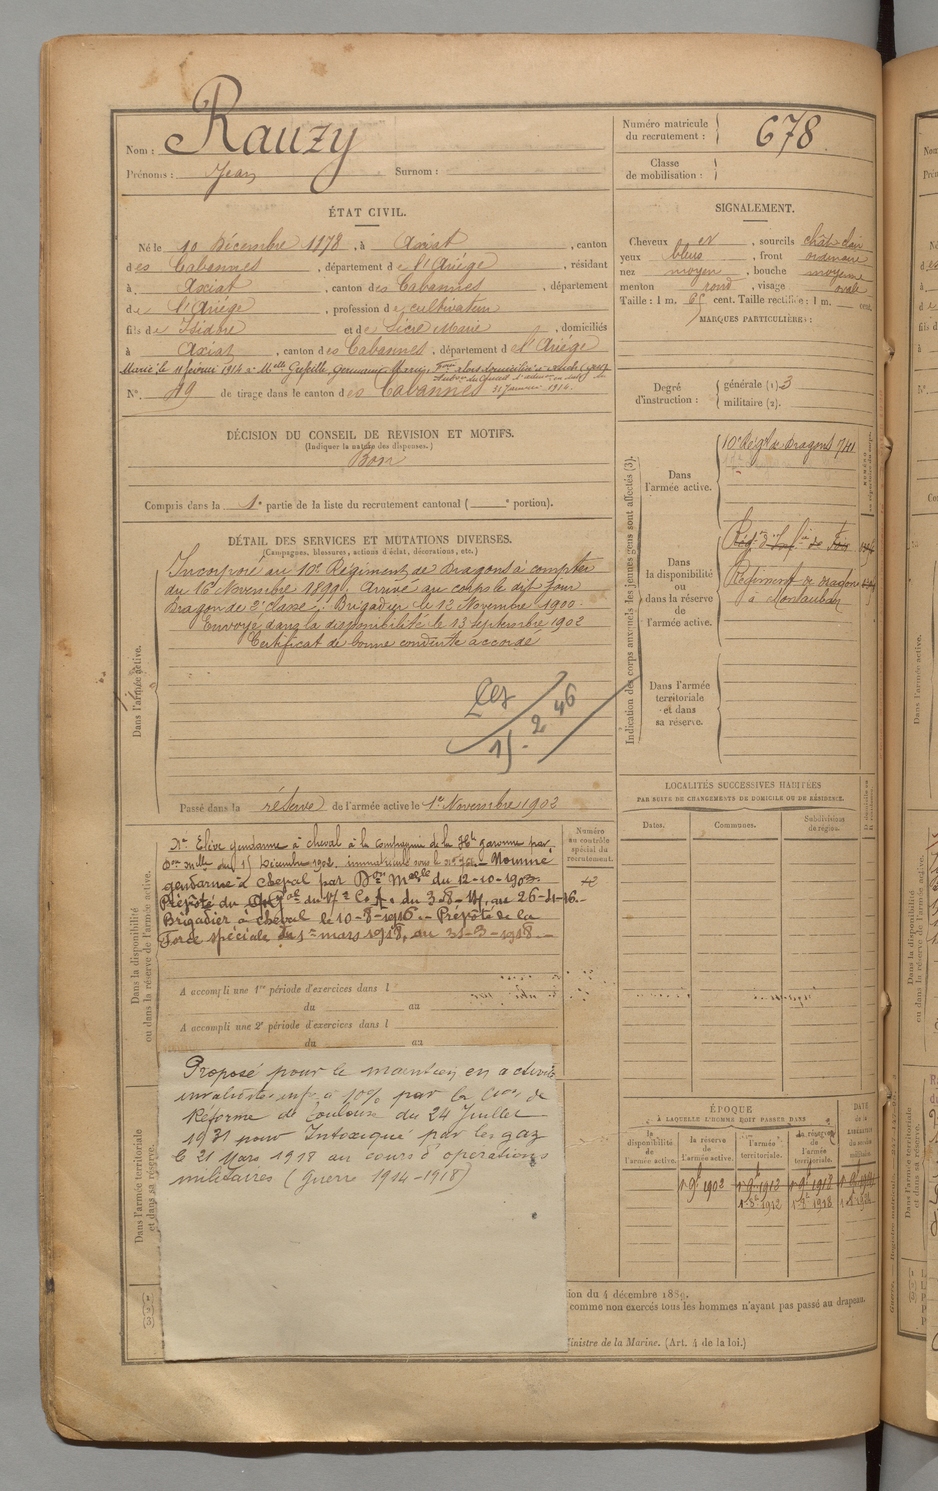 Nom : Rauzy
Prénoms : Jean Surnom :
ÉTAT CIVIL.
Né le 10 Décembre 1878, à Axiat, canton
des Cabannes, département de l'Ariége, résidant
à Axiat, canton des Cabannes, département
de l'Ariége, profession de cultivateur
fils de Isidore et de Marie, domiciliés
à Axiat, canton des Cabannes, département de l'Ariége
Marié le 11 février 1914 à Melle
N° 19 de tirage dans le canton des Cabannes 31 Janvier 1914.
DÉCISION DU CONSEIL DE REVISION ET MOTIFS.
(Indiquer la nature des dispenses.)
Bon
Compris dans la 1e partie de la liste du recrutement cantonal ( e portion).
DÉTAIL DES SERVICES ET MUTATIONS DIVERSES.
(Campagnes, blessures, actions d'éclat, décorations, etc.)
Dans l'armée active.
Incorporé au 10e Régiment de Dragons à compter
du 16 Novembre 1899. Arrivé au corps le dit jour
Dragon de 2e classe. Brigadier le 12 Novembre 1900.
Envoyé dans la disponibilité le 13 Septembre 1902
Certificat de bonne conduite accordé
15 - 2 46
Passé dans la réserve de l'armée active le 1er Novembre 1902
Dans la disponibilité
ou dans la réserve de l'armée active.
Numéro
au contrôle
spécial du
recrutement.
Élève gendarme à cheval à la Compagnie de la Hte Garonne par
Don melle du 15 Décembre 1902. immatriculé sous le Nommé
gendarme à cheval par Don Melle du 12-10-1903.
Prévôté du du 17e C. A. du 3-8-14, au 26-11-16.
Brigadier à cheval le 10-8-1916. Prévôté de la
Force spéciale du 1er mars 1918, au 31-3-1918
A accompli une 1re période d'exercices dans l
du au
A accompli une 2e période d'exercices dans l
du au
Dans l'armée territoriale
et dans sa réserve.
Proposé pour le maintien en activité
invalidité inf. à 10% par la Cion de
Réforme de Toulouse du 24 Juillet
1931 pour Intoxiqué par les gaz
le 21 Mars 1918 au cours d'opérations
militaires (guerre 1914-1918)
tion du 4 décembre 1889.
comme non exercés tous les hommes n'ayant pas passé au drapeau.
Ministre de la Marine. (Art. 4 de la loi.)
Numéro matricule
du recrutement : 678
Classe
de mobilisation :
SIGNALEMENT.
Cheveux et, sourcils chât. clair
yeux bleus, front ordinaire
nez moyen, bouche moyenne
menton rond, visage ovale
Taille : 1 m. 65 cent. Taille rectifiée : 1 m. cent.
MARQUES PARTICULIÈRES :
Degré
d'instruction :
générale (1) 3
militaire (2).
Indication des corps auxquels les jeunes gens sont affectés (3).
Dans
l'armée active.
10e Régt de Dragons 741
Dans
la disponibilité
ou
dans la réserve
de
l'armée active.
Régiment de dragons
à Montauban
Dans l'armée
territoriale
et dans
sa réserve.
LOCALITÉS SUCCESSIVES HABITÉES
PAR SUITE DE CHANGEMENTS DE DOMICILE OU DE RÉSIDENCE.
Dates. Communes. Subdivision
de région.
ÉPOQUE
À LAQUELLE L'HOMME DOIT PASSER DANS
la
disponibilité
de
l'armée active.
la réserve
de
l'armée active.
l'armée
territoriale.
la réserve
de
l'armée
territoriale.
DATE
de la
LIBÉRATION
du service
militaire.